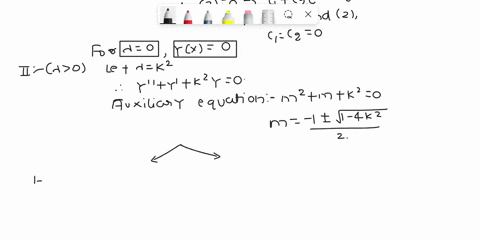 and (2),
c₁=c₂=0
For λ=0, Y(x)=0
II:-(λ>0) let λ=K²
∴ Y''+Y'+K²Y=0
Auxiliary equation:- m²+m+K²=0
m= (-1 ± √(1-4K²))/2